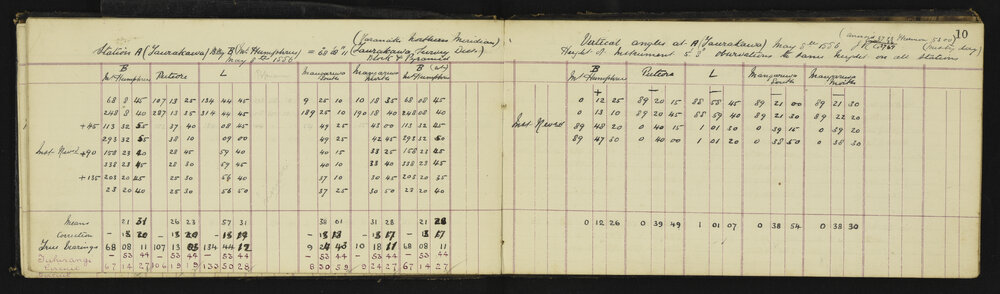 (Taranaki Northern Meridian)
Station A (Taurakawa) Brg B (Mt Humphries) = 68° 08' 11" (Taurakawa, Survey Desc.)
May 5th 1886 Block & Pyramid
B Mt Humphries Puteore L Mangarewa South Mangarewa North B (Mt) Humphries
68 8 45 107 13 25 134 44 45 9 25 10 10 18 35 68 08 45
248 8 40 287 13 35 314 44 45 189 25 10 190 18 40 248 08 40
+45 113 32 55 37 40 08 45 49 25 43 00 113 32 45
293 32 55 38 10 09 00 49 25 42 45 293 32 50
Inst. Revd +90 158 23 40 28 45 59 40 40 15 33 25 158 23 45
338 23 45 28 50 59 45 40 10 33 40 338 23 45
+135 203 20 45 25 30 56 40 37 10 30 45 203 20 35
23 20 40 25 30 56 50 37 25 30 50 23 20 40
Means 21 31 26 23 57 31 38 01 31 28 21 28
Correction – 13 20 – 13 20 – 13 19 – 13 18 – 13 17 – 13 17
True bearings 68 08 11 107 13 03 134 44 12 9 24 43 10 18 11 68 08 11
– 53 44 – 53 44 – 53 44 – 53 44 – 53 44 – 53 44
67 14 27 106 19 19 133 50 28 8 30 59 9 24 27 67 14 27
10
Vertical angles at A (Taurakawa) May 5th 1886
Height of Instrument 5.3 observations to same height on all stations
B Mt Humphries Puteore L Mangarewa South Mangarewa North
+ – – – –
0 12 25 89 20 15 88 58 45 89 21 00 89 21 30
0 13 10 89 20 45 88 59 40 89 21 30 89 22 20
Inst Revsd 89 48 20 0 40 15 1 01 30 0 39 15 0 39 20
89 47 50 0 40 00 1 01 20 0 38 50 0 38 30
0 12 26 0 39 49 1 01 07 0 38 54 0 38 30